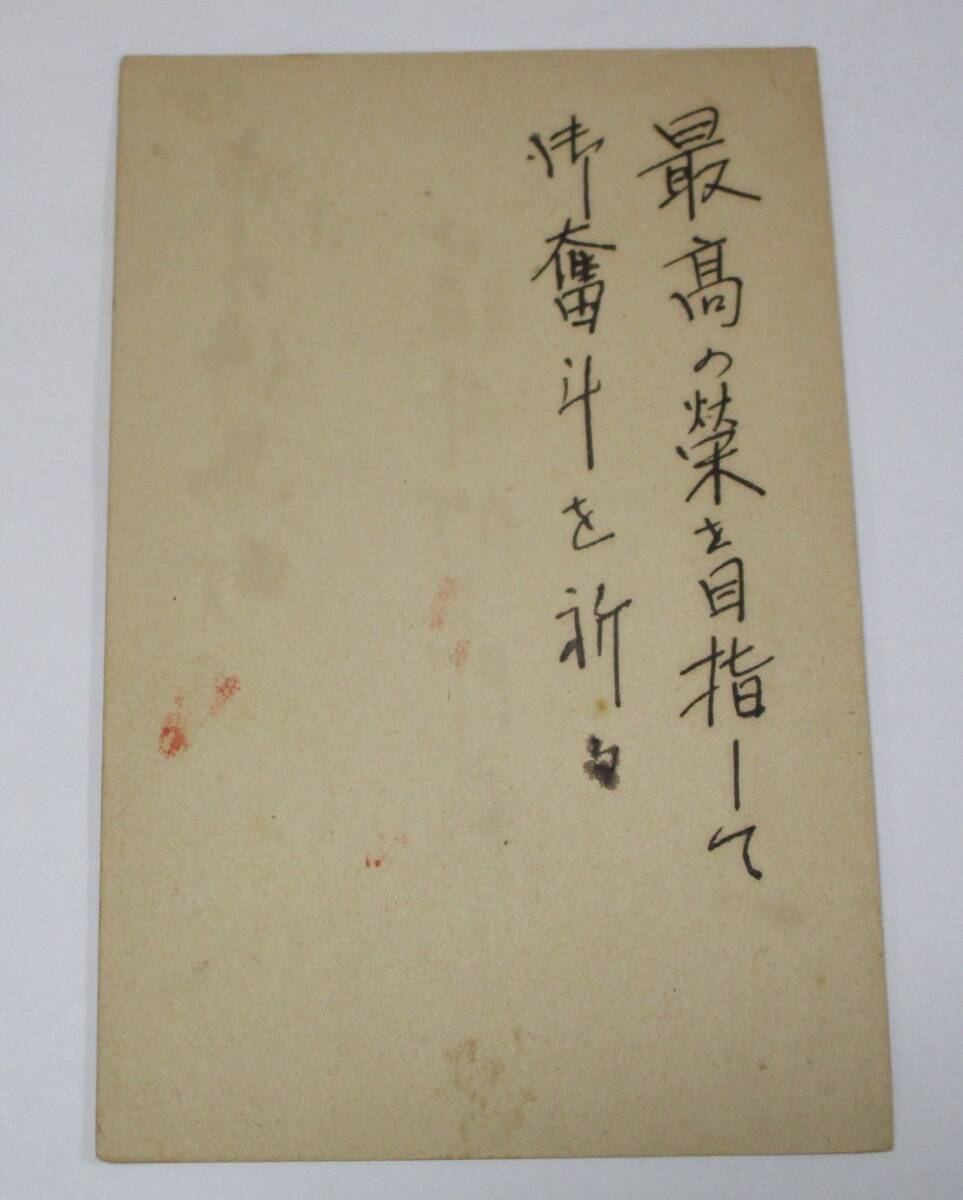 最高の榮を目指して
御奮斗を祈る